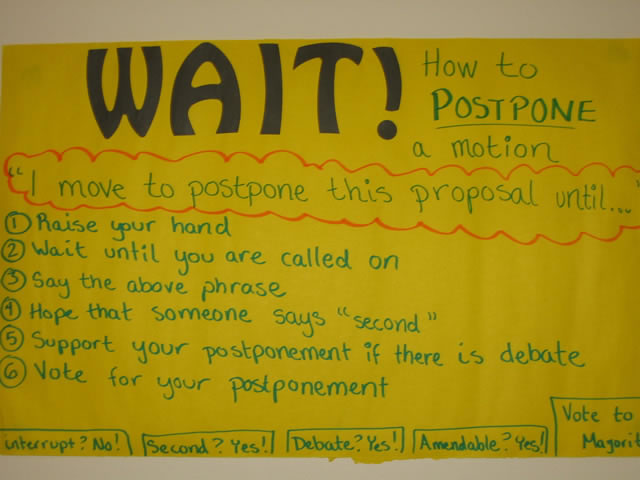 WAIT!
How to
POSTPONE
a motion
"I move to postpone this proposal until..."
① Raise your hand
② Wait until you are called on
③ Say the above phrase
④ Hope that someone says "second"
⑤ Support your postponement if there is debate
⑥ Vote for your postponement
interrupt? No!
Second? Yes!
Debate? Yes!
Amendable? Yes!
Vote to
Magorit